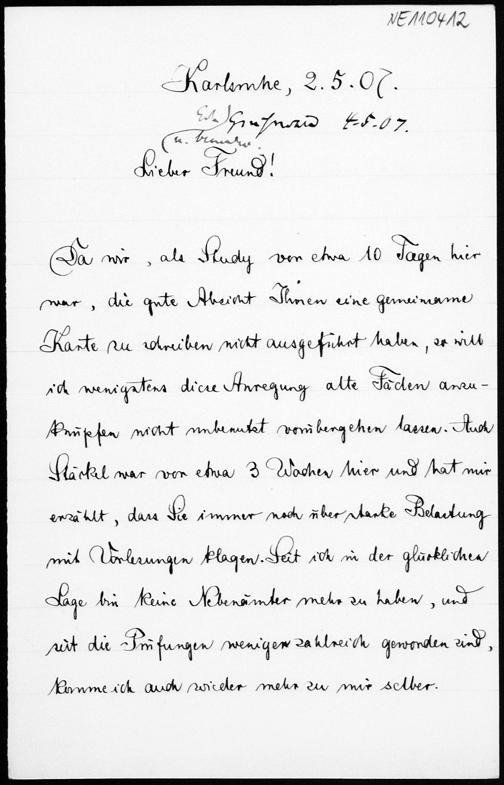 NE110412
Karlsruhe, 2.5.07.
Greifswald 4.5.07.
Lieber Freund!
Da wir, als Study vor etwa 10 Tagen hier
war, die gute Absicht Ihnen eine gemeinsame
Karte zu schreiben nicht ausgeführt haben, so will
ich wenigstens diese Anregung alte Fäden anzu-
knüpfen nicht unbenutzt vorübergehen lassen. Auch
Stäckel war vor etwa 3 Wochen hier und hat mir
erzählt, dass Sie immer noch über starke Belastung
mit Vorlesungen klagen. Seit ich in der glücklichen
Lage bin keine Nebenämter mehr zu haben, und
seit die Prüfungen weniger zahlreich geworden sind,
komme ich auch wieder mehr zu mir selber.